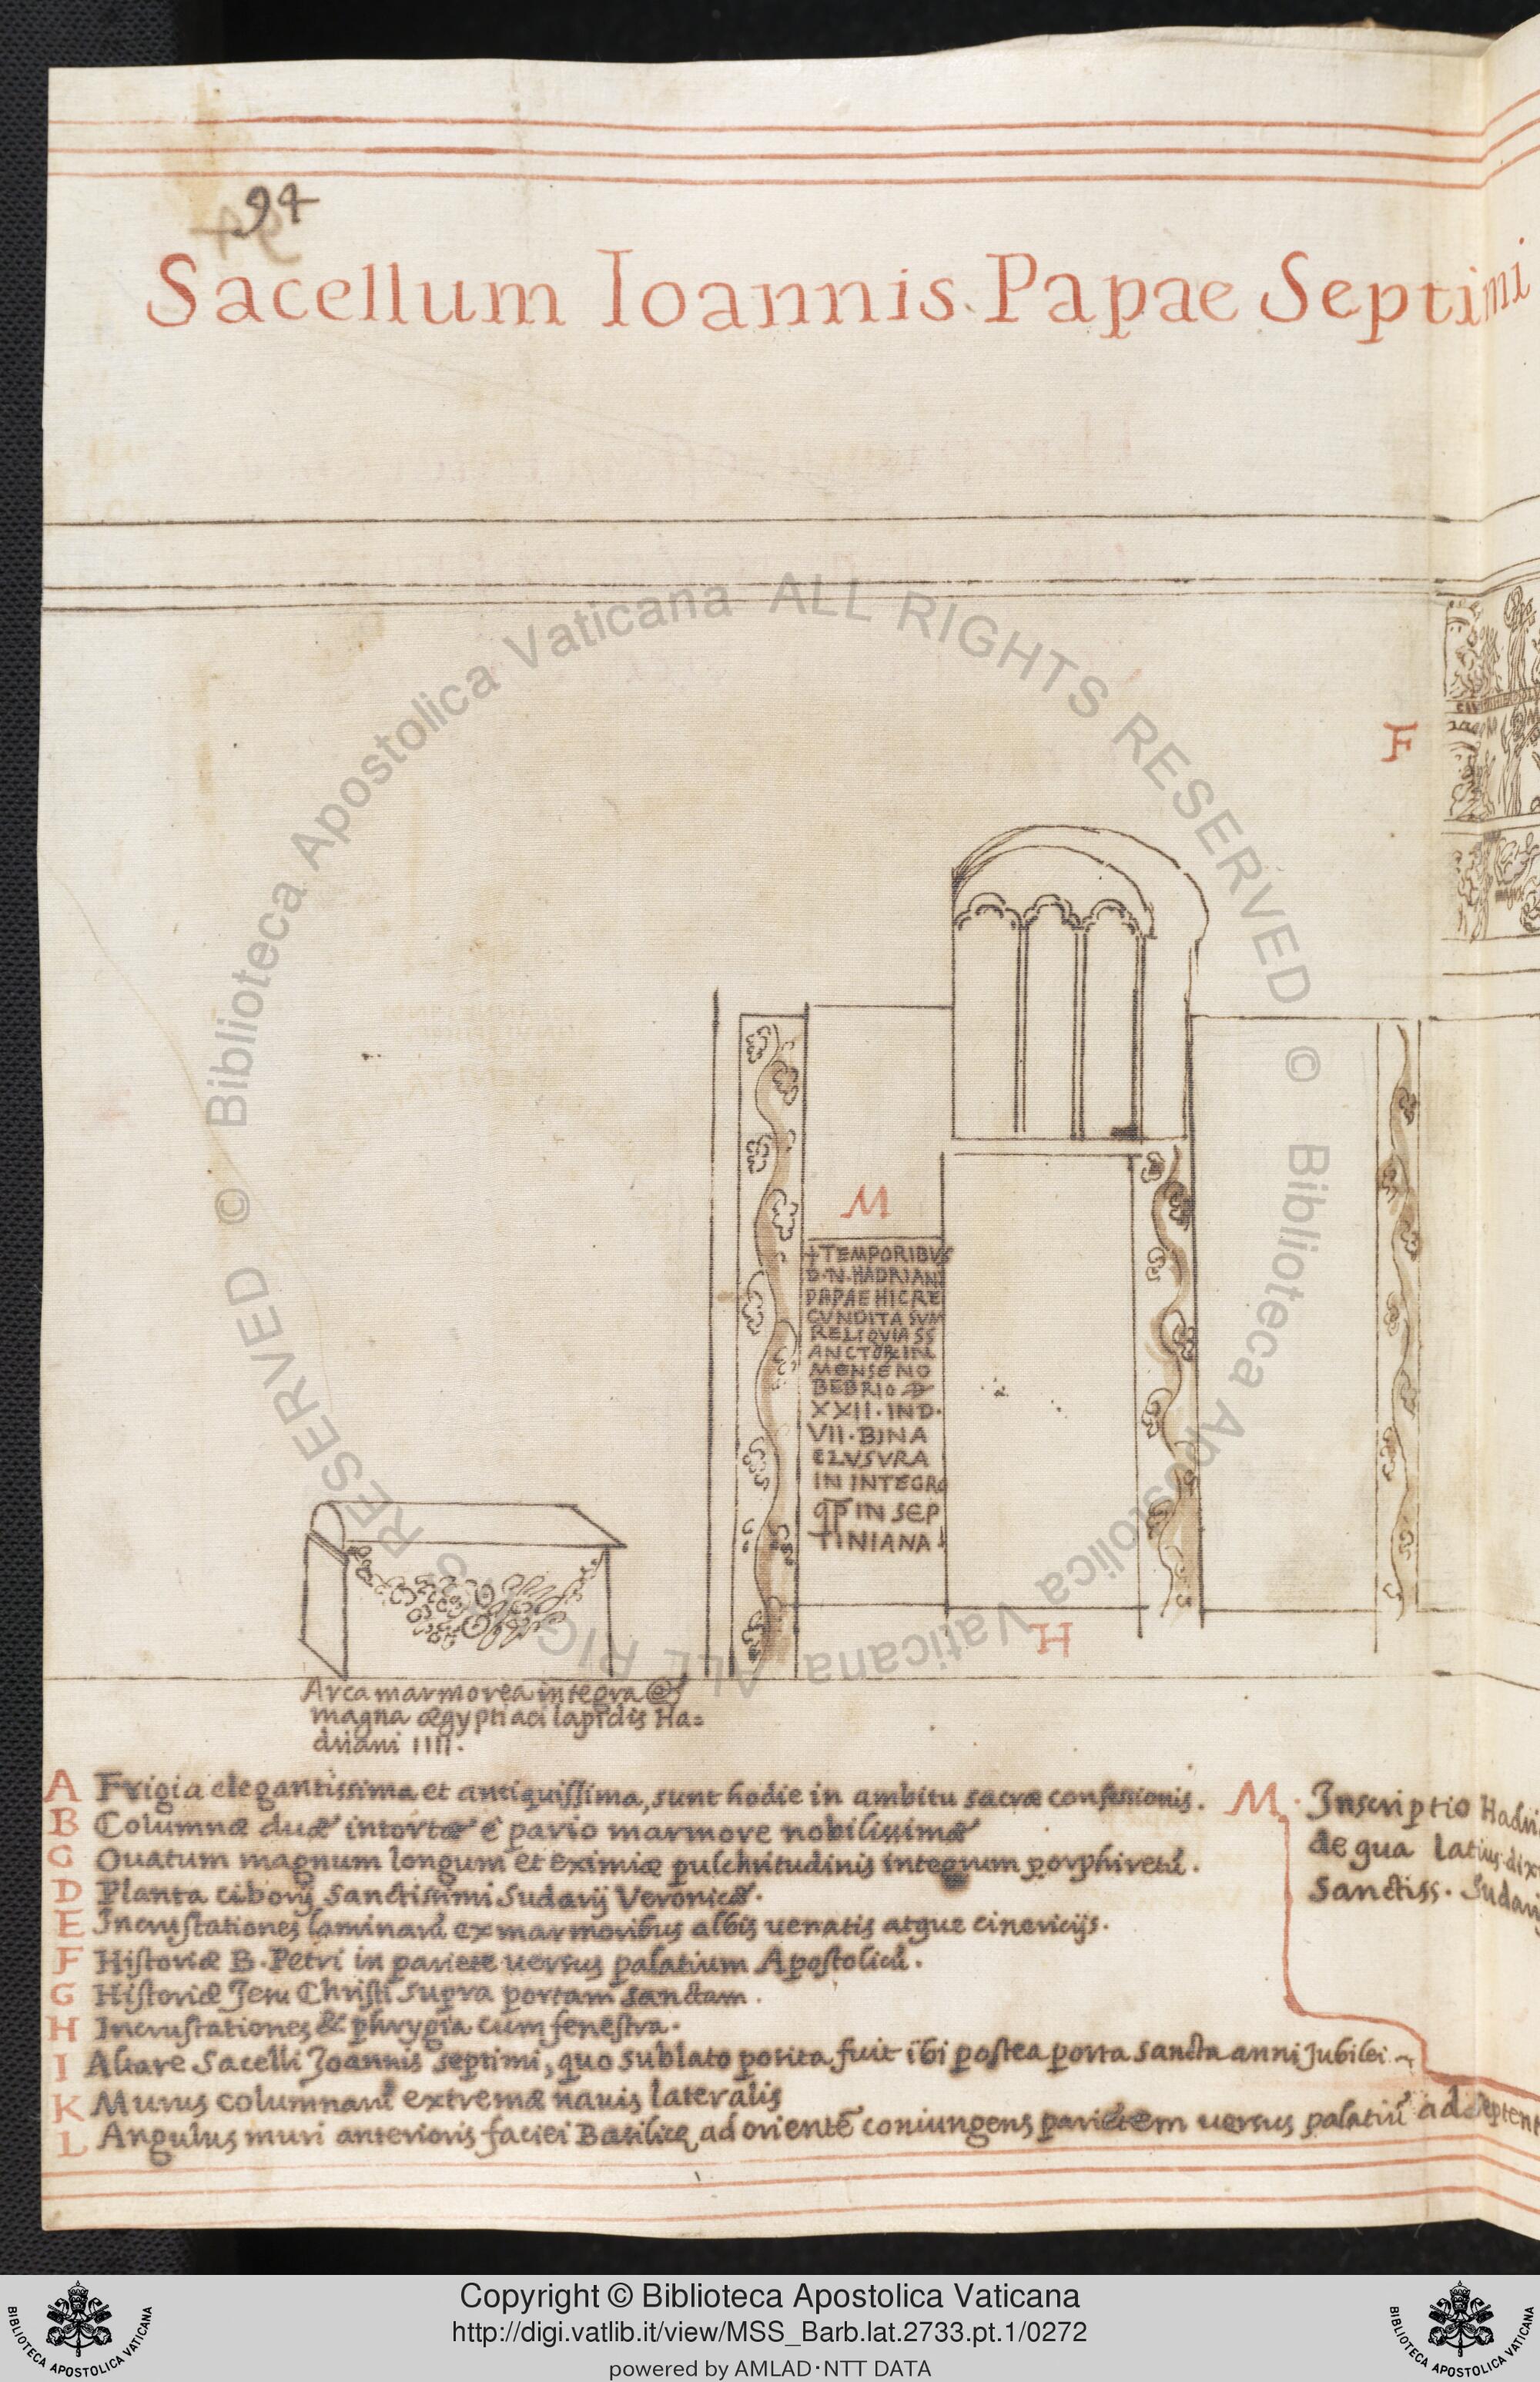 94
Sacellum Ioannis Papae Septimi
F
M
+TEMPORIBVS
D·N·HADRIANI
PAPAE HIC RE
CVNDITA SVN
RELIQVIA SS
ANCTOR IN
MENSE NO
BEBRIO
XXII·IND·
VII·BINA
CLVSVRA
IN INTEGRO
IN SEP
TINIANA
H
Arca marmorea integra &
magna ægyptiaci lapidis Ha=
driani IIII.
A Frigia elegantissima et antiquissima, sunt hodie in ambitu sacræ confessionis.
B Columnæ duæ intortæ è pario marmore nobilissimæ
C Ouatum magnum longum et eximiæ pulchritudinis integrum porphiretū.
D Planta ciborij sanctissimi Sudarij Veronicæ.
E Incrustationes laminarū ex marmoribus albis uenatis atque cinericijs.
F Historiæ B. Petri in pariete uersus palatium Apostolicū.
G Historiæ Jesu Christi supra portam sanctam.
H Incrustationes & phrygia cum fenestra.
I Altare Sacelli Joannis septimi, quo sublato posita fuit ibi postea porta sancta anni Jubilei
K Murus columnarū extremæ nauis lateralis
L Angulus muri anterioris faciei Basilicę ad orientē coniungens parietem uersus palatiū ad septent
M. Inscriptio Hadri
de qua latius dix
Sanctiss. Sudarij
© Biblioteca Apostolica Vaticana ALL RIGHTS RESERVED © Biblioteca Apostolica Vaticana ALL RIGHTS RESERVED
Copyright © Biblioteca Apostolica Vaticana
http://digi.vatlib.it/view/MSS_Barb.lat.2733.pt.1/0272
powered by AMLAD·NTT DATA
BIBLIOTECA APOSTOLICA VATICANA
BIBLIOTECA APOSTOLICA VATICANA